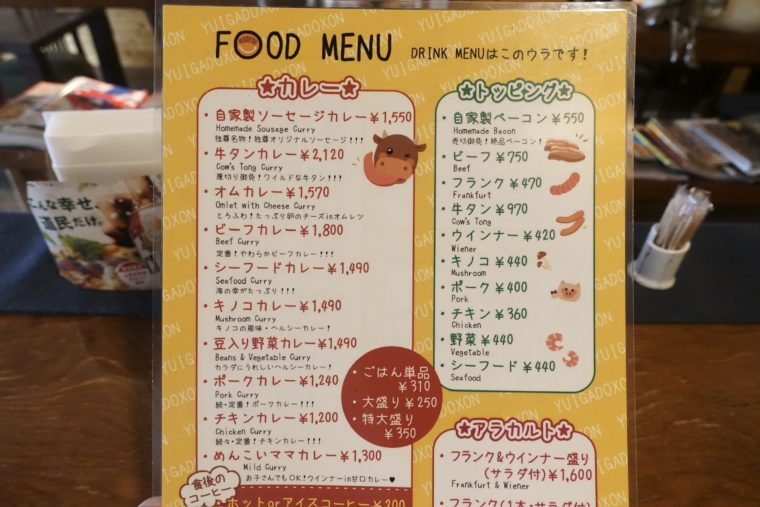 FOOD MENU
DRINK MENUはこのウラです!
★カレー★
・自家製ソーセージカレー¥1,550
Homemade Sausage Curry
独尊名物!独尊オリジナルソーセージ!!!
・牛タンカレー¥2,120
Cow's Tong Curry
厚切り御免!ワイルドな牛タン!!!
・オムカレー¥1,570
Omlet with Cheese Curry
とろふわ!たっぷり卵のチーズinオムレツ
・ビーフカレー¥1,800
Beef Curry
定番!やわらかビーフカレー!!!
・シーフードカレー¥1,490
Seafood Curry
海の幸がたっぷり!!!
・キノコカレー¥1,490
Mushroom Curry
キノコの風味・ヘルシーカレー!
・豆入り野菜カレー¥1,490
Beans & Vegetable Curry
カラダにうれしいヘルシーカレー!
・ポークカレー¥1,240
Pork Curry
続・定番!ポークカレー!!!
・チキンカレー¥1,200
Chicken Curry
続々・定番!チキンカレー!!!
・めんこいママカレー¥1,300
Mild Curry
お子さんでもOK!ウインナーin甘口カレー♥
・ごはん単品
¥310
・大盛り¥250
・特大盛り
¥350
食後の
コーヒー
・ホットorアイスコーヒー¥200
★トッピング★
・自家製ベーコン¥550
Homemade Bacon
売切御免!絶品ベーコン!
・ビーフ¥750
Beef
・フランク¥470
Frankfurt
・牛タン¥970
Cow's Tong
・ウインナー¥420
Wiener
・キノコ¥440
Mushroom
・ポーク¥400
Pork
・チキン¥360
Chicken
・野菜¥440
Vegetable
・シーフード¥440
Seafood
★アラカルト★
・フランク&ウインナー盛り
(サラダ付)¥1,600
Frankfurt & Wiener
・フランク(1本・サラダ付)
YUIGADOXON
こんな幸せ、
道民だけ。